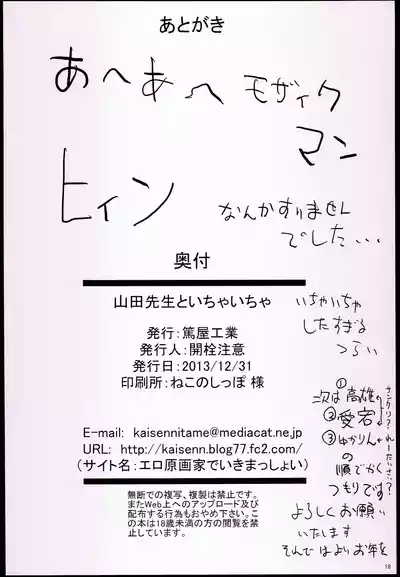 あとがき
あへあへ モザイク
マン
ヒィン
なんかすりません
でした...
奥付
山田先生といちゃいちゃ
発行:篤屋工業
発行人:開栓注意
発行日:2013/12/31
印刷所:ねこのしっぽ 様
E-mail: kaisennitame@mediacat.ne.jp
URL: http://kaisenn.blog77.fc2.com/
(サイト名:エロ原画家でいきまっしょい)
無断での複写、複製は禁止です。
またWeb上へのアップロード及び
配布する行為もおやめ下さい。
この本は18歳未満の方の閲覧を禁
止しています。
いちゃいちゃ
したすぎる
つらい
次は①高雄
②愛宕
③ゆかりん
の
順でかく
つもりです
サンクリ?
れーたいさい?
よろしくお願い
いたします
それではよいお年を
18